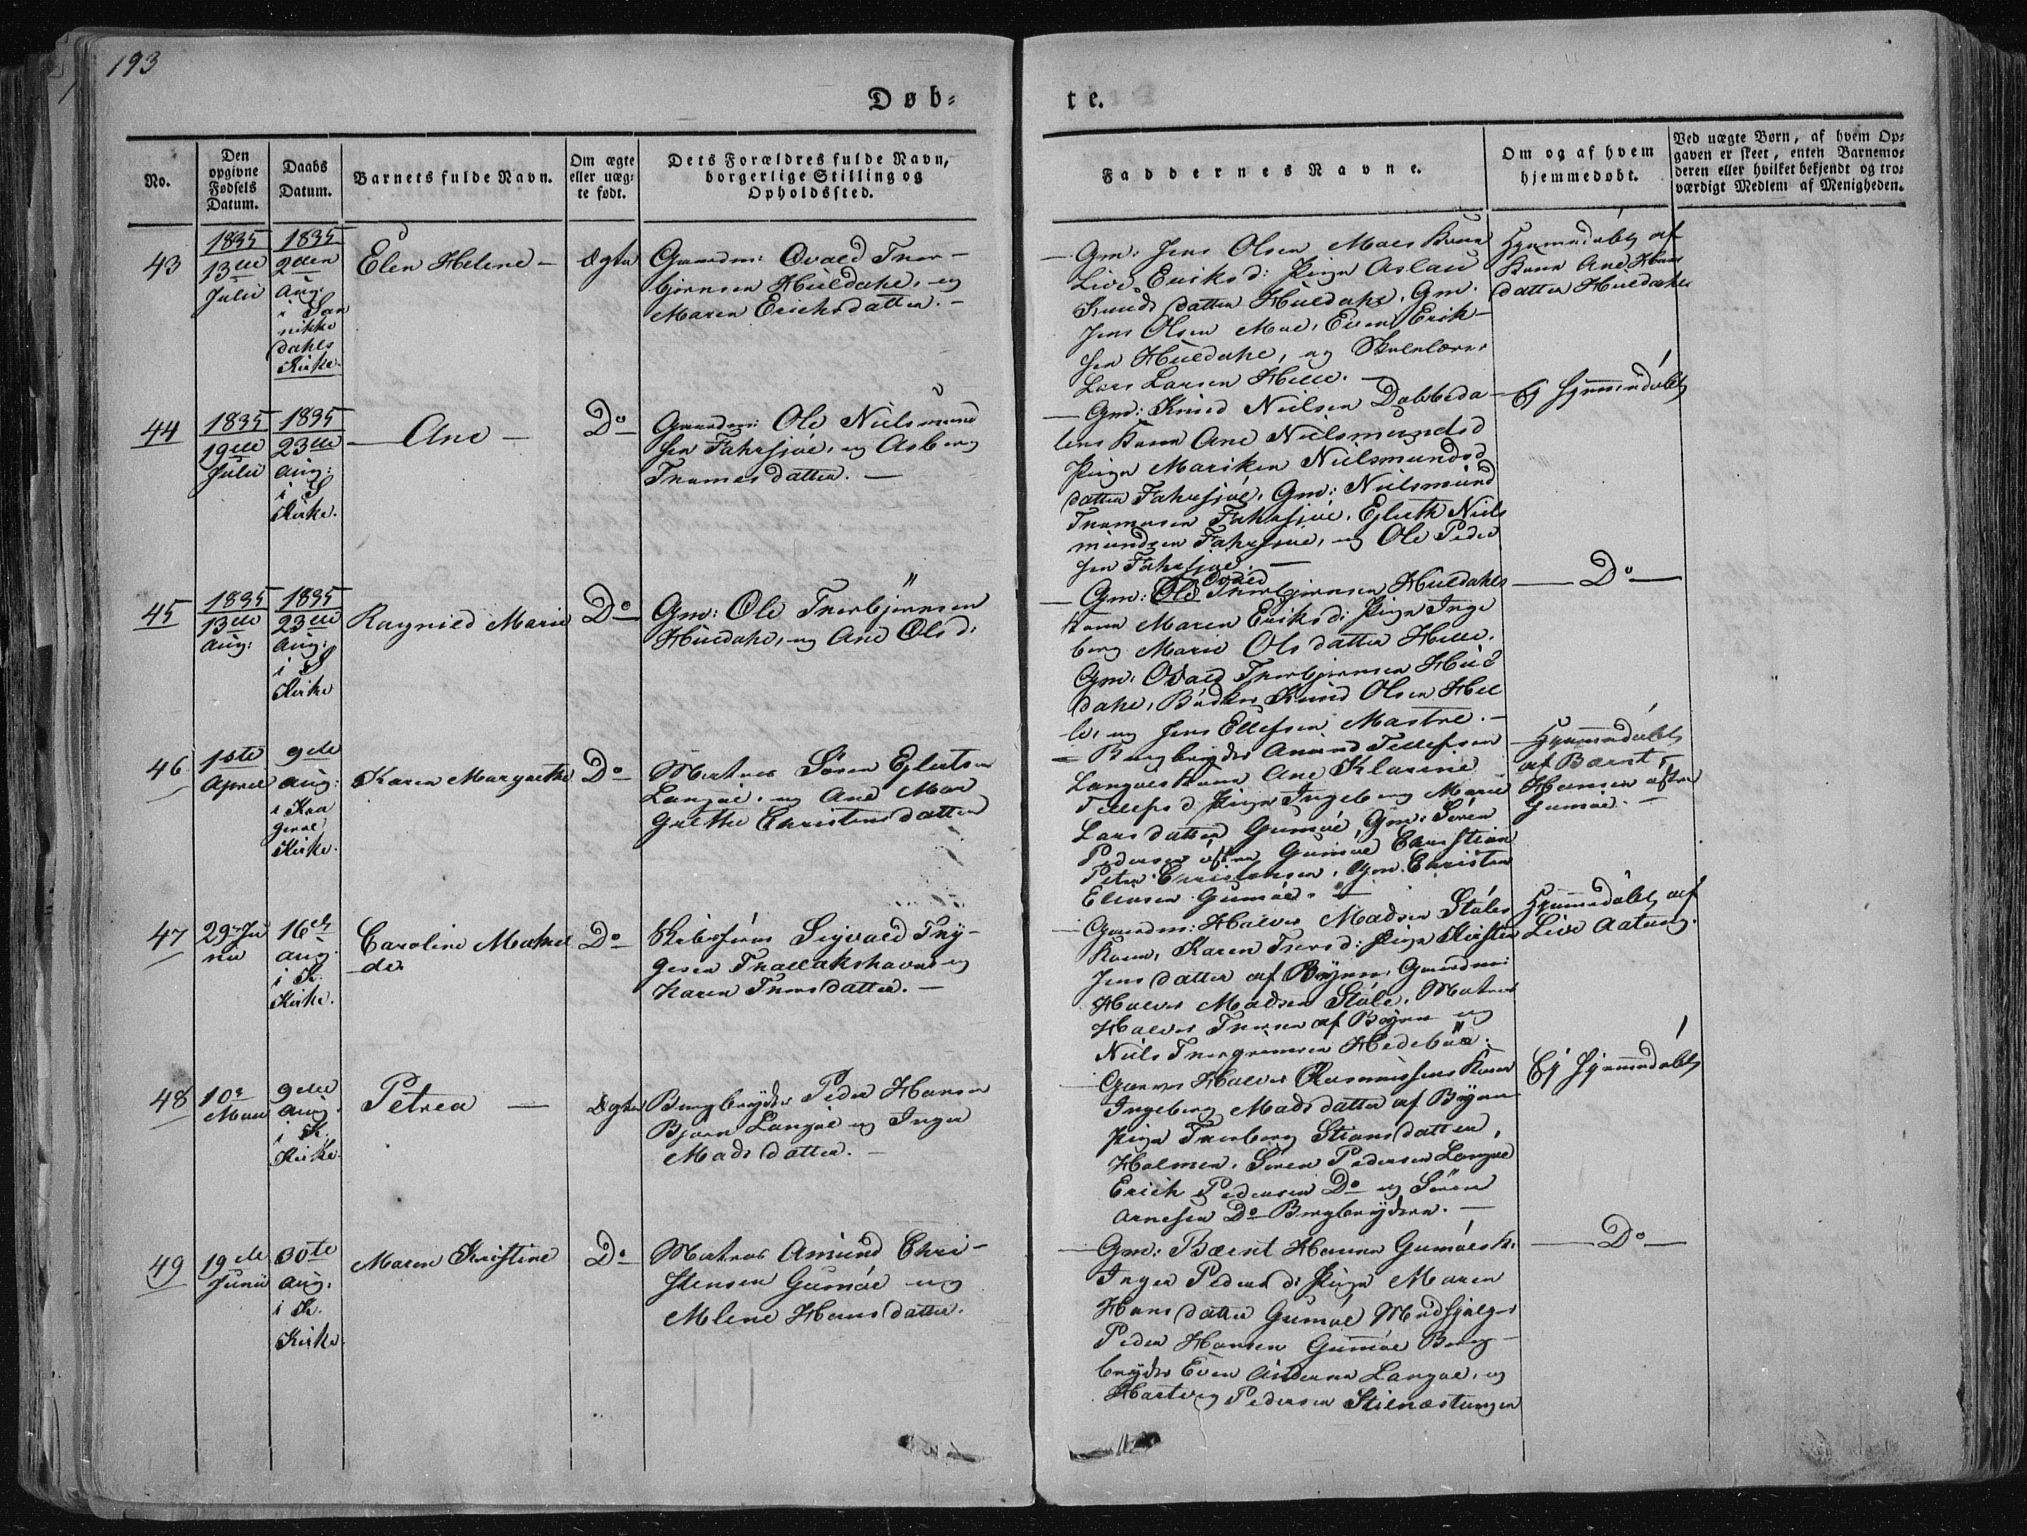 193
Døb-
te.
No.
Den opgivne Fødsels Datum.
Daabs Datum.
Barnets fulde Navn.
Om ægte eller uægte født.
Dets Forældres fulde Navn, borgerlige Stilling og Opholdssted.
Faddernes Navne.
Om og af hvem hjemmedøbt.
Ved uægte Børn, af hvem Opgaven er skeet, enten Barnemoderen eller hvilket bekjendt og troværdigt Medlem af Menigheden.
43
1835
13de
Julii
1835
2den
Aug:
i San
nikke
dahls
Kirke.
Elen Helene —
Ægte
Gaardm: Ovald Thor-
bjørnsen Huldahl, og
Maren Erichsdatter. —
— Gm: Jens Olsen Maes Kone
Live Eriksd: Pige Aslau
Knudsdatter Huldahl, Gm.
Jens Olsen Mae, Even Erik-
sen Huldahl, og Skolelærer
Lars Larsen Helle. —
Hjemmedøbt af
Kone Ane Hans
datter Huldahl
44
1835
19de
Julii
1835
23de
Aug:
i S
Kirke.
— Ane —
Do
Gaardm: Ole Nielsmund
sen Fahrsjøe, og Asberg
Thomesdatter. —
— Gm: Knud Nielsen Dobbeda-
lens Kone Ane Nielsmundsd
Pige Mariken Nielsmundsd
datter Fahrsjøe, Gm: Nielsmund
Thomasen Fahrsjøe, Ejlerth Niels
mundsen Fahrsjøe, og Ole Peder
sen Fahrsjøe. —
Ej hjemmedøbt
45
1835
13de
Aug:
1835
23de
Aug:
i S
Kirke
Ragnild Marie
Do
Gm: Ole Thorbjørnsen
Huldahl, og Ane Olsd:
Ovald
— Gm: Ole Thorbjørnsen Huldahls
Kone Maren Eriksd: Pige Inge
borg Marie Olsdatter Helle.
Gm: Ovald Thorbjørnsen Huld
dahl, Bødker Knud Olsen Hel
le, og Jens Ellefsen Mastre. —
— Do —
46
1ste
April
9de
Aug:
i Kra
gerøe
Kirke.
Karen Margrethe
Do
Matros Søren Ejlertsen
Langøe, og Ane Mar
grethe Christensdatter
— Bergbryder Amund Tellefsen
Langøes Kone Ane Klarine
Tellefsd Pige Ingeborg Marie
Larsdatter Gumøe, Gm: Søren
Pedersen østre Gumøe, Christian
Peter Christensen, Gm. Christen
Eliasen Gumøe. —
Hjemmedøbt
af Bærnt
Hansen østre
Gumøe. —
47
29 Ju
nii
16de
Aug.
i K.
Kirke.
Caroline Mathil
de.
Do
Sigvald Thy-
gesen Thallakshavn og
Karen Thorsdatter. —
— Gaardm: Halvor Madsen Støles
Kone, Karen Thorsd: Pige Kirsten
Jensdatter af Byen, Gaardm:
Halvor Madsen Støle, Matros
Halvor Thorsen af Byen og
Niels Thorgrimsen Hedebøe.
Hjemmedøbt af
Live Aatang.
48
10de
Maii
9de
Aug.
i K.
Kirke
Petrea —
Ægte
Bergbryder Peder Hansen
Bjørn Langøe og Inger
Madsdatter. —
— Halvor Rasmussens Kone
Ingeborg Madsdatter af Byen
Pige Thorberg Stiansdatter,
Holmen, Søren Pedersen Langøe
Erich Pedersen Do og Søren
Arnesen Do Bergbrydere. —
Ej hjemmedøbt
49
19de
Junii
30te
Aug.
i K.
Kirke
Maren Kristine
Do
Matros Amund Chri-
stensen Gumøe og
Malene Hansdatter.
— Gm: Bærnt Hansen Gumøes K.
Inger Pedersd: Pige Maren
Hansdatter Gumøe
Peder Hansen Gumøe Berg-
bryder Even Andersen Langøe, og
Hartvig Pedersen Stilnæstangen
— Do —